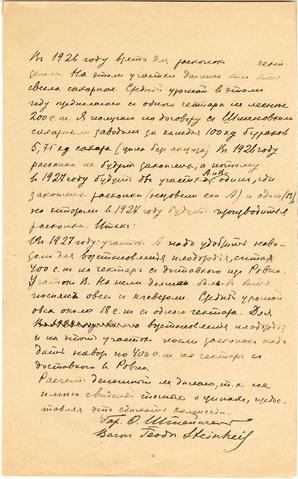 В 1926 году взято для раскопок
земли. На этом участке должна была быть
свекла сахарная. Средний урожай в этом
году предполагаю с одного гектара не менее
200 с.m. Я получаю по договору со Шпановским
сахарным заводом за каждые 100 kg бураков
5,75 kg сахара (цена без акциза). В 1926 году
раскопки не будут закончены, а потому
в 1927 году будут два участка А и В: один, где
закончены раскопки (назовем его А) и один (В),
на котором в 1927 году будут производится
раскопки. Итак:
В 1927 году: участок А надо удобрить наво-
зом для восстановления плодородия, считая
400 с.m. на гектар с доставкой из Ровно.
Участок В. На нем должен был быть
посеян овес с клевером. Средний урожай
овса около 18 с.m. с одного гектара. Для
восстановления плодородия
и на этом участке после раскопок надо
дать навоз по 400 с.m. на гектар с
доставкой из Ровно.
Расчет денежный не делаю, т.к. не
имею сведений точных о ценах, предос-
тавляя это сделать комиссии.
Бар. Ф. Штейнгель
Baron Teodor Steinheil